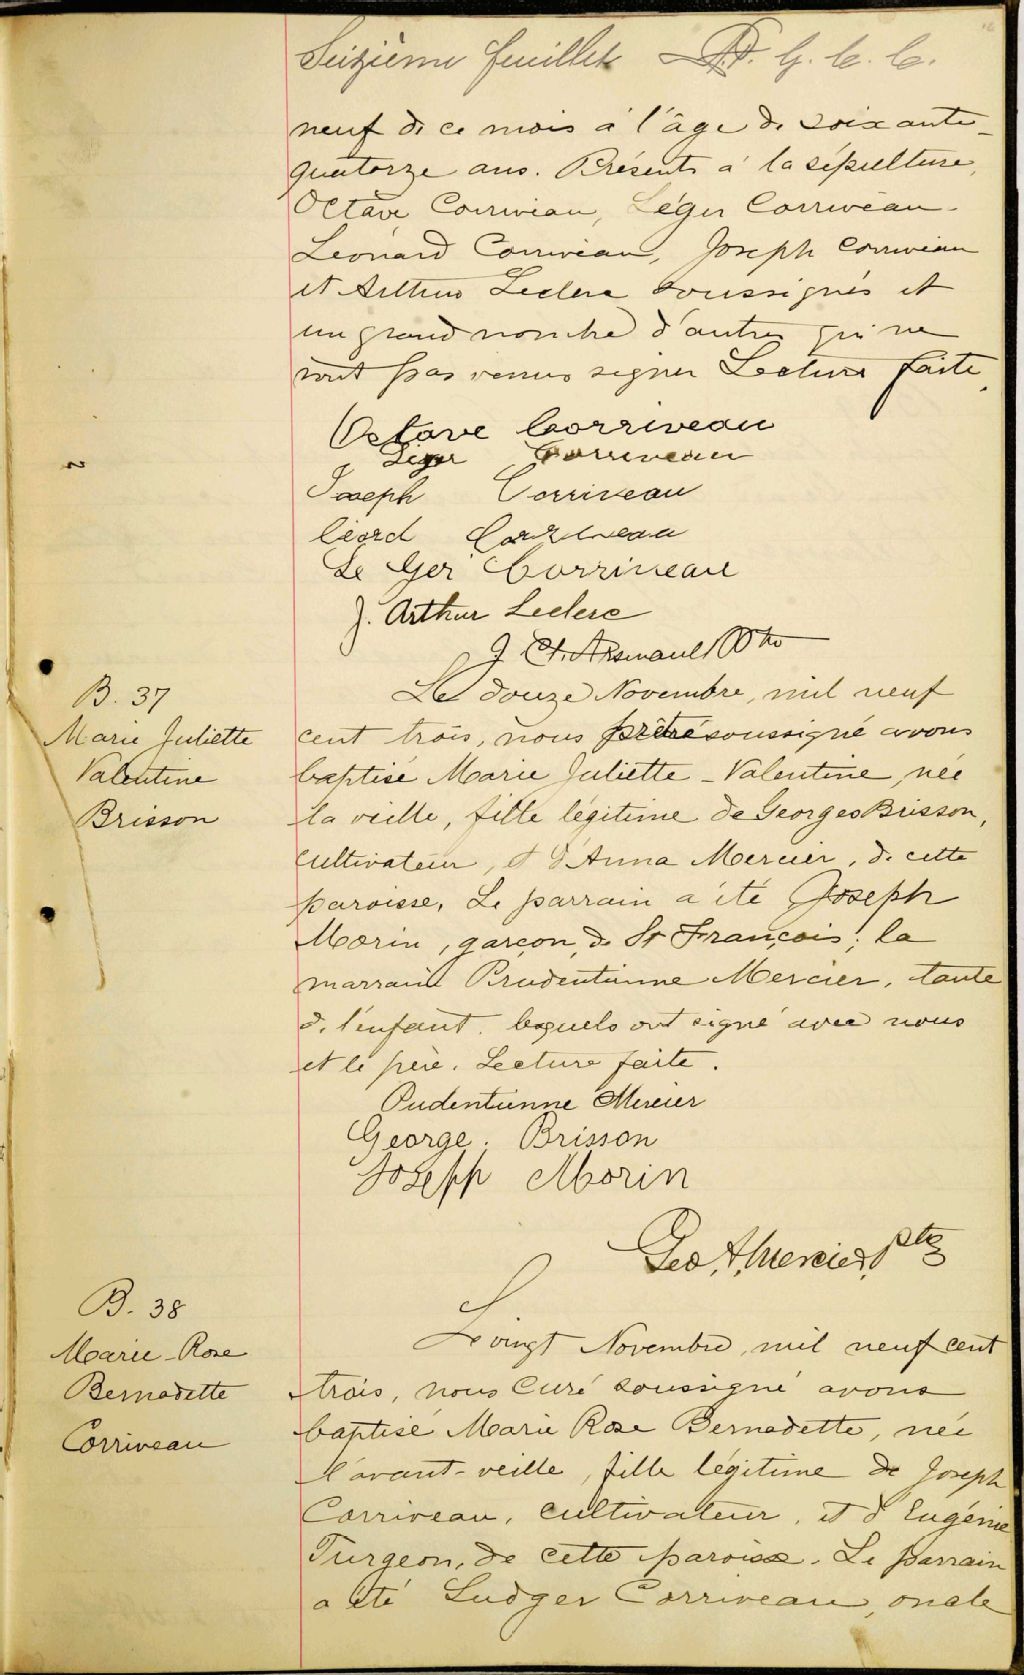 Seizième feuillet G. C. C.
neuf de ce mois à l'âge de soixante-
quatorze ans. Présents à la sépulture,
Octave Corriveau, Léger Corriveau
Léonard Corriveau, Joseph Corriveau
et Arthur Leclerc soussignés et
un grand nombre d'autres qui ne
sont pas venus signer Lecture faite.
Octave Corriveau
Léger Corriveau
Joseph Corriveau
Léord Corriveau
Le Ger Corriveau
J. Arthur Leclerc
J Cl. Arsenault Ptre
B. 37
Marie Juliette
Valentine
Brisson
Le douze Novembre, mil neuf
cent trois, nous prêtre soussigné avons
baptisé Marie Juliette-Valentine, née
la veille, fille légitime de Georges Brisson,
cultivateur, et d'Anna Mercier, de cette
paroisse. Le parrain a été Joseph
Morin, garçon, de St François; la
marraine Prudentienne Mercier, tante
de l'enfant. lesquels ont signé avec nous
et le père. Lecture faite.
Pudentienne Mercier
George. Brisson
Joseph Morin
Geo. A. Mercier, ptre
B. 38
Marie-Rose
Bernadette
Corriveau
Le vingt Novembre, mil neuf cent
trois, nous Curé soussigné avons
baptisé Marie Rose Bernadette, née
l'avant-veille, fille légitime de Joseph
Corriveau, cultivateur, et d'Eugénie
Turgeon, de cette paroisse. Le parrain
a été Ludger Corriveau, oncle